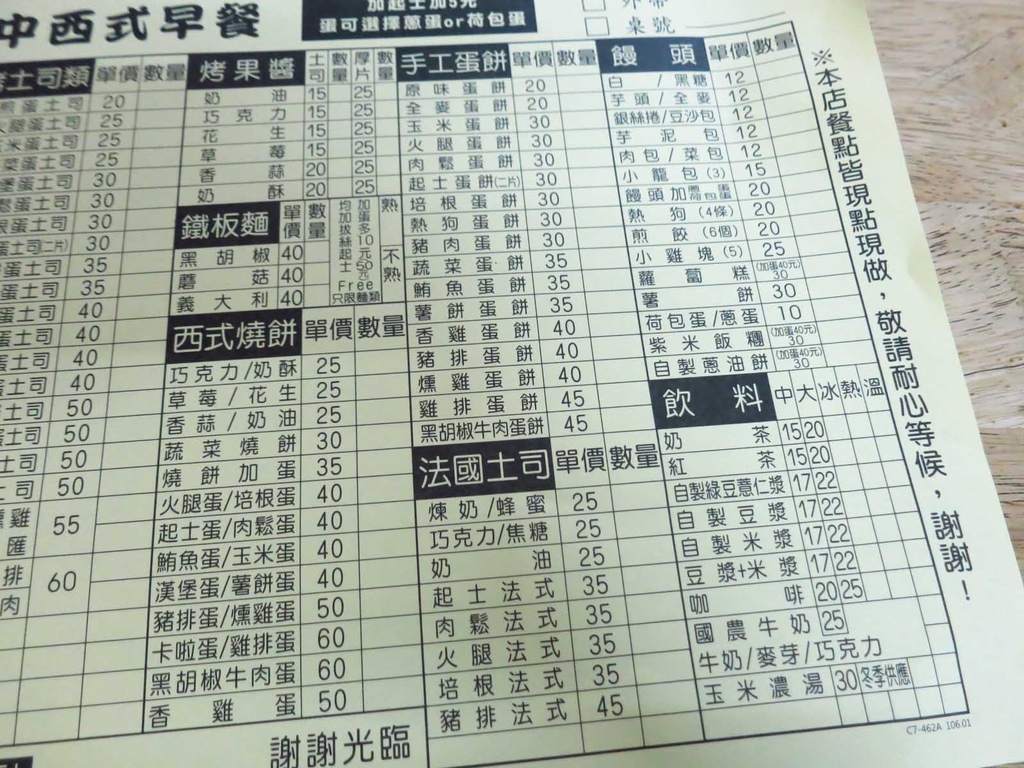 中西式早餐
加起士加5元
蛋可選擇蔥蛋or荷包蛋
桌號
土司類 單價 數量
蛋土司 20
腿蛋土司 25
米蛋土司 25
菜蛋土司 25
堡蛋土司 30
鬆蛋土司 30
根蛋土司 30
蛋土司(二片) 30
蛋土司 35
蛋土司 35
蛋土司 40
蛋土司 40
土司 40
土司 40
土司 50
土司 50
土司 50
土司 50
燻雞
匯 55
排
肉 60
烤果醬 土司 數量 厚片 數量
奶油 15 25
巧克力 15 25
花生 15 25
草莓 15 25
香蒜 20 25
奶酥 20 25
鐵板麵 單價 數量
黑胡椒 40
蘑菇 40
義大利 40
加蛋多10元
均加拔絲起士
50元
Free
只限麵類
熟
不熟
西式燒餅 單價 數量
巧克力/奶酥 25
草莓/花生 25
香蒜/奶油 25
蔬菜燒餅 30
燒餅加蛋 35
火腿蛋/培根蛋 40
起士蛋/肉鬆蛋 40
鮪魚蛋/玉米蛋 40
漢堡蛋/薯餅蛋 40
豬排蛋/燻雞蛋 50
卡啦蛋/雞排蛋 60
黑胡椒牛肉蛋 60
香雞蛋 50
手工蛋餅 單價 數量
原味蛋餅 20
全麥蛋餅 20
玉米蛋餅 30
火腿蛋餅 30
肉鬆蛋餅 30
起士蛋餅(二片) 30
培根蛋餅 30
熱狗蛋餅 30
豬肉蛋餅 30
蔬菜蛋餅 35
鮪魚蛋餅 35
薯餅蛋餅 35
香雞蛋餅 40
豬排蛋餅 40
燻雞蛋餅 40
雞排蛋餅 45
黑胡椒牛肉蛋餅 45
法國土司 單價 數量
煉奶/蜂蜜 25
巧克力/焦糖 25
奶油 25
起士法式 35
肉鬆法式 35
火腿法式 35
培根法式 35
豬排法式 45
饅頭 單價 數量
白/黑糖 12
芋頭/全麥 12
銀絲捲/豆沙包 12
芋泥包 12
肉包/菜包 12
小龍包(3) 15
饅頭加蔥蛋荷包蛋 20
熱狗(4條) 20
煎餃(6個) 20
小雞塊(5) 25
蘿蔔糕 (加蛋40元) 30
薯餅 30
荷包蛋/蔥蛋 10
紫米飯糰 (加蛋40元) 30
自製蔥油餅 (加蛋40元) 30
飲料 中 大 冰 熱 溫
奶茶 15 20
紅茶 15 20
自製綠豆薏仁漿 17 22
自製豆漿 17 22
自製米漿 17 22
豆漿+米漿 17 22
咖啡 20 25
國農牛奶 25
牛奶/麥芽/巧克力
玉米濃湯 30 冬季供應
※本店餐點皆現點現做，敬請耐心等候，謝謝！
謝謝光臨
C7-462A 106.01